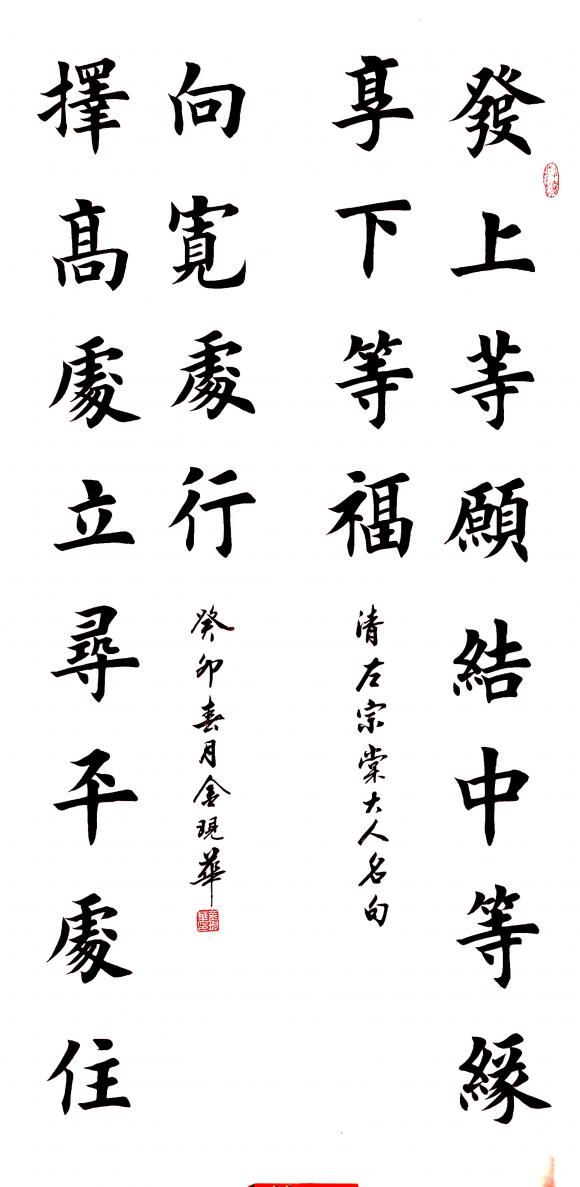 發上等願結中等緣
享下等福
清左宗棠大人名句
擇高處立尋平處住
向寬處行
癸卯春月金現華